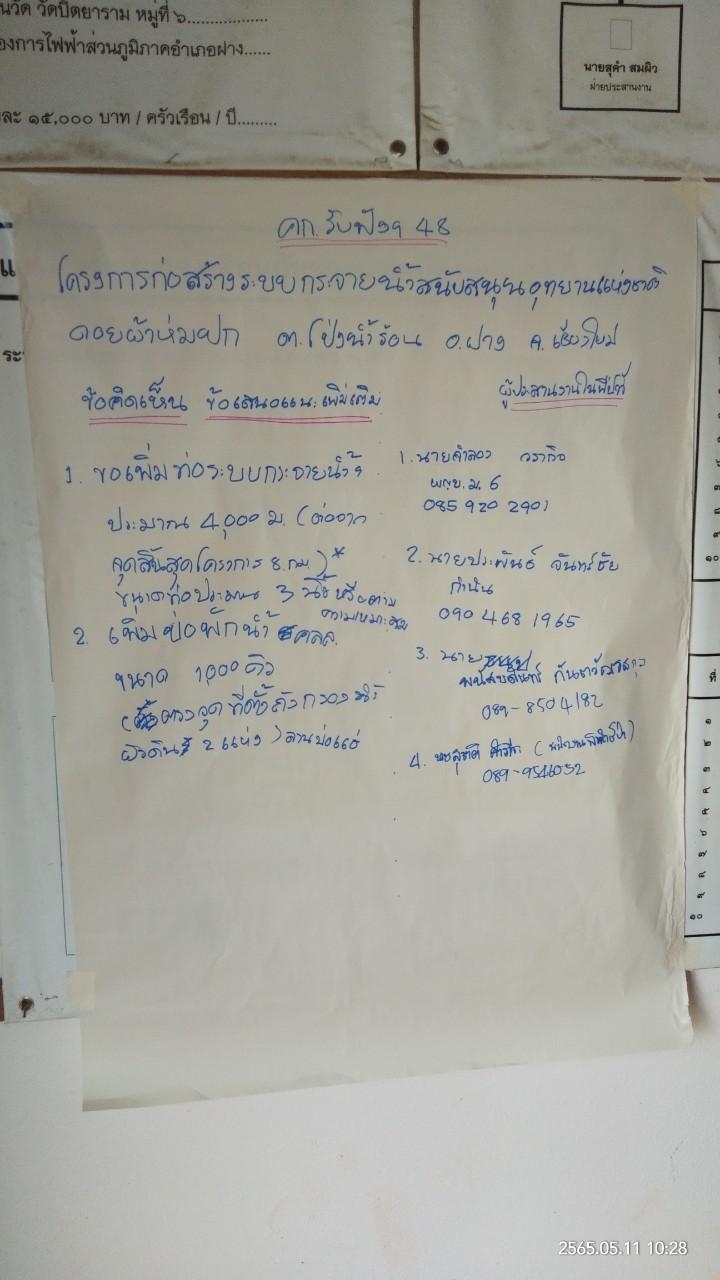 นวัด วัดปิตยาราม หมู่ที่ ๖
องการไฟฟ้าส่วนภูมิภาคอำเภอฝาง
ละ ๑๕,๐๐๐ บาท / ครัวเรือน / ปี
นายสุคำ สมผิว
ฝ่ายประสานงาน
คก. รับฟังฯ 48
โครงการก่อสร้างระบบกระจายน้ำสนับสนุนอุทยานแห่งชาติ
ดอยผ้าห่มปก ต.โป่งน้ำร้อน อ.ฝาง จ.เชียงใหม่
ข้อคิดเห็น ข้อเสนอแนะเพิ่มเติม
1. ขอเพิ่มท่อระบบกระจายน้ำฯ
ประมาณ 4,000 ม. (ต่อจาก
จุดสิ้นสุดโครงการ 8 กม.)*
ขนาดท่อประมาณ 3 นิ้วหรือตาม
ความเหมาะสม
2. เพิ่มบ่อพักน้ำ คสล.
ขนาด 1,000 คิว
(ตรงจุดที่ตั้งถังกรองน้ำ
ผิวดิน 2 แห่ง)
ผู้ประสานงานในพื้นที่
1. นายคำลอง
ผญบ.ม. 6
085 920 2901
2. นายประพันธ์ จันทร์ชัย
กำนัน
090 468 1965
3. นาย
089-8504182
4.
089-9546052
ที่
2565.05.11 10:28